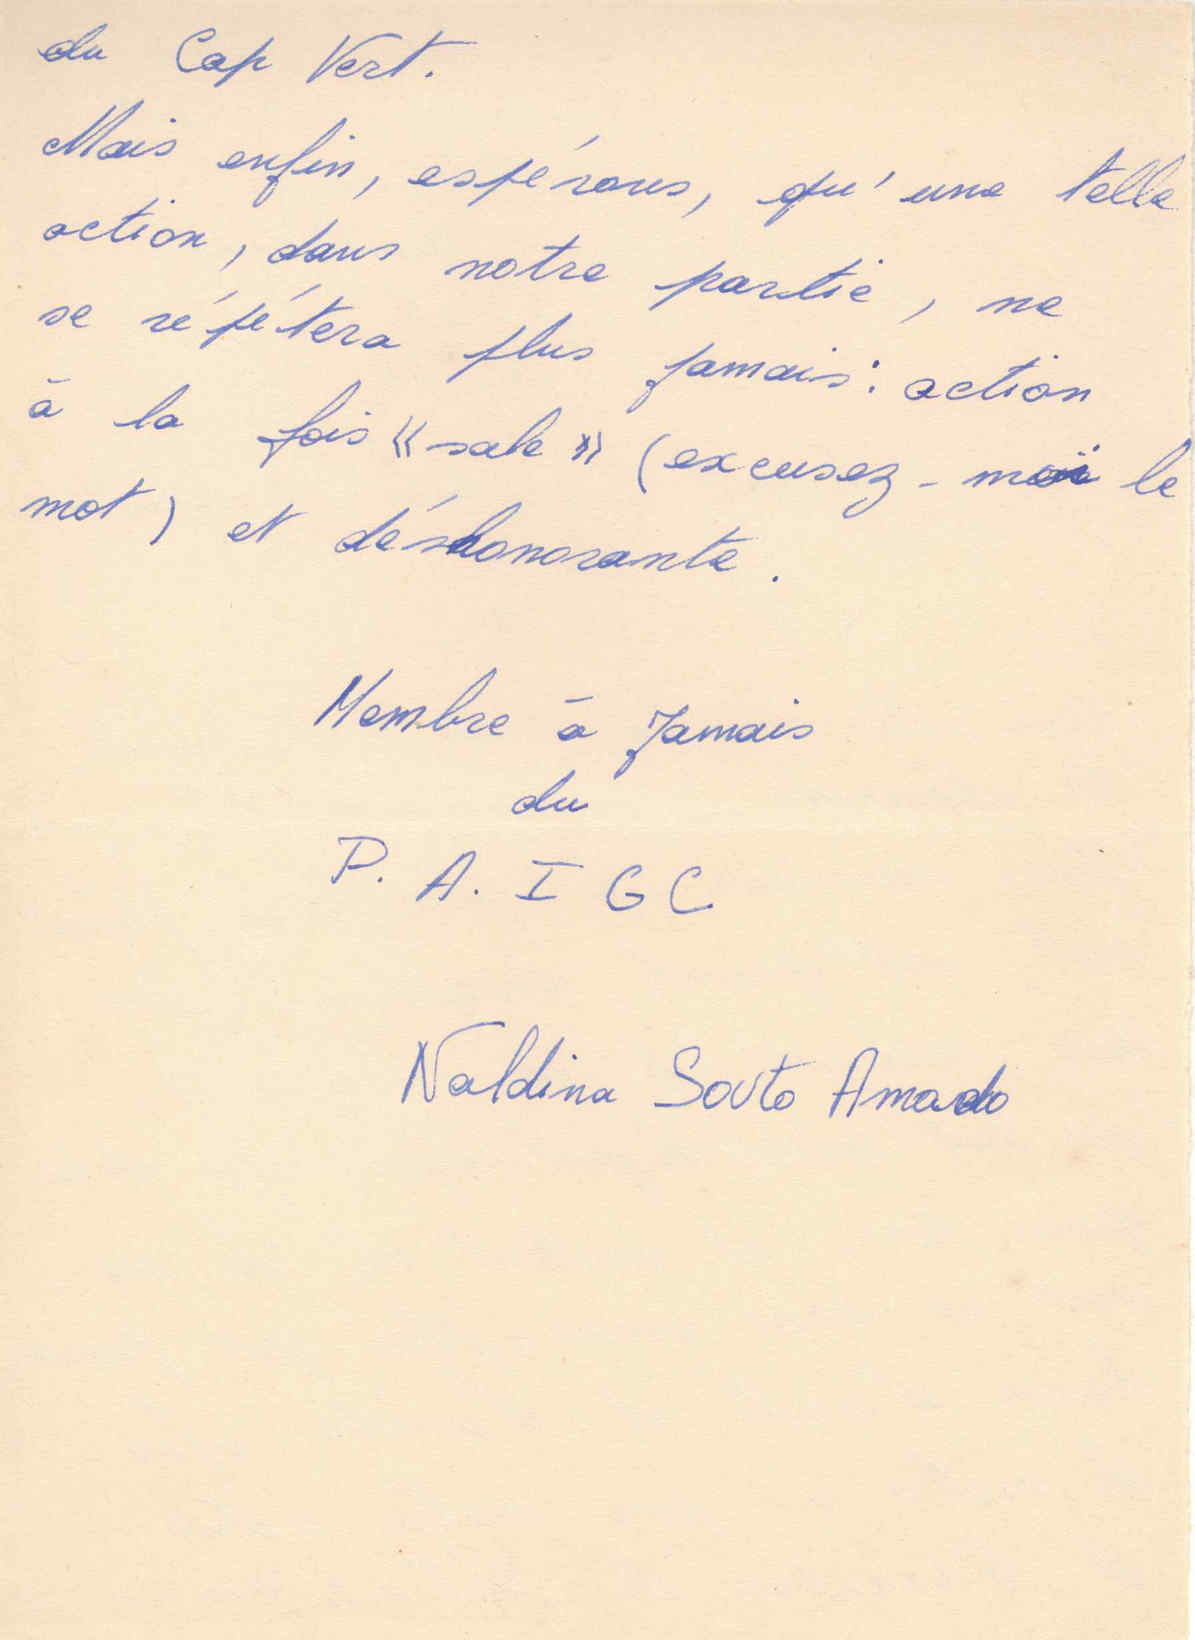 du Cap Vert.
Mais enfin, espérons, qu'une telle
action, dans notre partie, ne
se répétera plus jamais : action
à la fois « sale » (excusez-moi le
mot) et déshonorante.
Membre à Jamais
du
P. A. I G C
Naldina Souto Amado